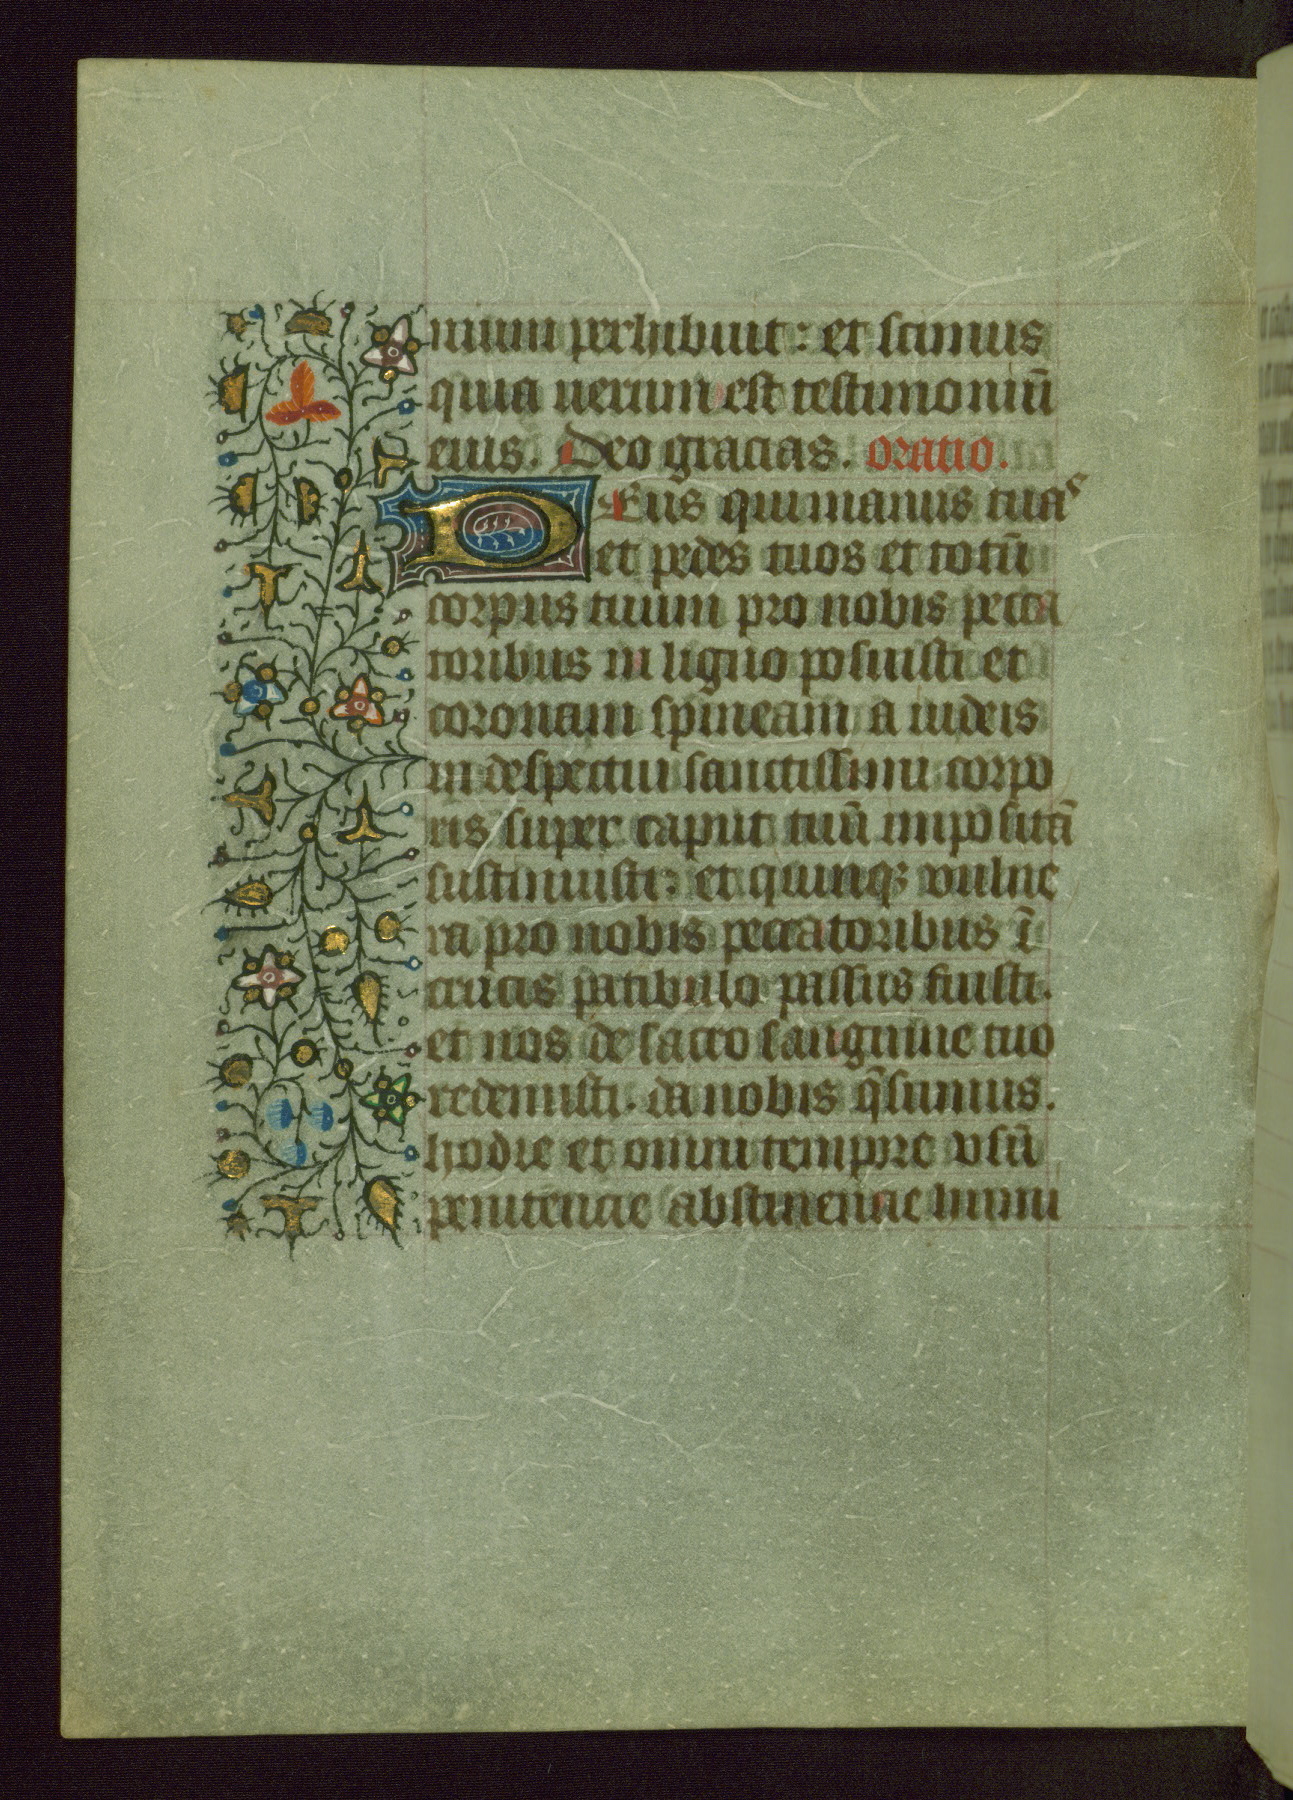 nium perhibuit: et scimus
quia uerum est testimoniū
eius. Deo gracias. oratio.
DEus qui manus tuas
et pedes tuos et totū
corpus tuum pro nobis pecca
toribus in ligno posuisti et
coronam spineam a iudeis
in despectui sanctissimi corpo
ris super caput tuū impositā
sustinuisti: et quinqꝫ vulne
ra pro nobis peccatoribus ī
crucis patibulo passus fuisti.
et nos de sacro sanguine tuo
redemisti. da nobis q̄sumus.
hodie et omni tempore vsū
penitencie abstinencie humi